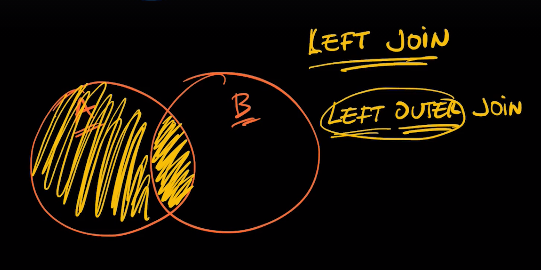 LEFT JOIN
A
B
LEFT OUTER JOIN